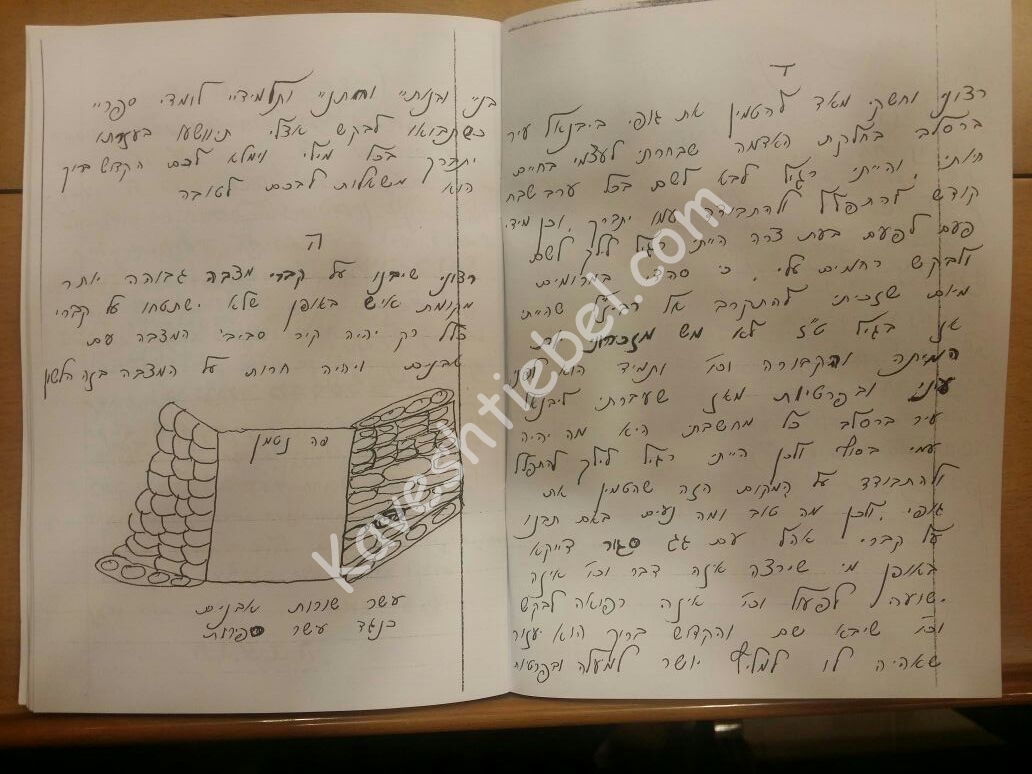 ד
רצוני וחשקי מאד להטמין את גופי ביבנאל עיר
ברסלב בחלקת האדמה שבחרתי לעצמי בחיים
חיותי, והייתי רגיל לבא לשם בכל ערב שבת
קודש להתפלל ולהתבודד עמו יתברך, וכן מידי
פעם לפעם בעת צרה הייתי רגיל לילך לשם
ולבקש רחמים עלי, כי סהדי במרומים
מיום שזכיתי להתקרב אל רביז״ל שהייתי
אז בגיל ט״ז לא מש מזכרוני יום
המיתה והקבורה וכו׳ ותמיד הוא נגד
עיני ובפרטיות מאז שעברתי ליבנאל
עיר ברסלב כל מחשבתי היא מה יהיה
עמי בסוף ולכן הייתי רגיל לילך להתפלל
ולהתבודד על המקום הזה שהטמין את
גופי, ולכן מה טוב ומה נעים באם תבנו
על קברי אהל עם גג סגור דייקא
באופן מי שירצה איזה דבר וכו׳ איזה
ישועה לפעול וכו׳ איזה רפואה לבקש
וכו׳ שיבא שם והקדוש ברוך הוא יעזור
שאהיה לו למליץ יושר למעלה ובפרטות
בניי ובנותיי וחתניי ותלמידיי לומדי ספריי
כשתבואו לבקש אצלי תיוושעו בעזרתו
יתברך בכל מילי וימלא לכם הקדוש ברוך
הוא משאלות לבכם לטובה
ה
רצוני שיבנו על קברי מצבה גבוהה יותר
מקומת איש באופן שלא ישתטחו על קברי
כלל רק יהיה קיר סביבי המצבה עם
אבנים ויהיה חרות על המצבה בזה הלשון
פה נטמן
עשר שורות אבנים
כנגד עשר ספירות
Kaveshtiebel.com